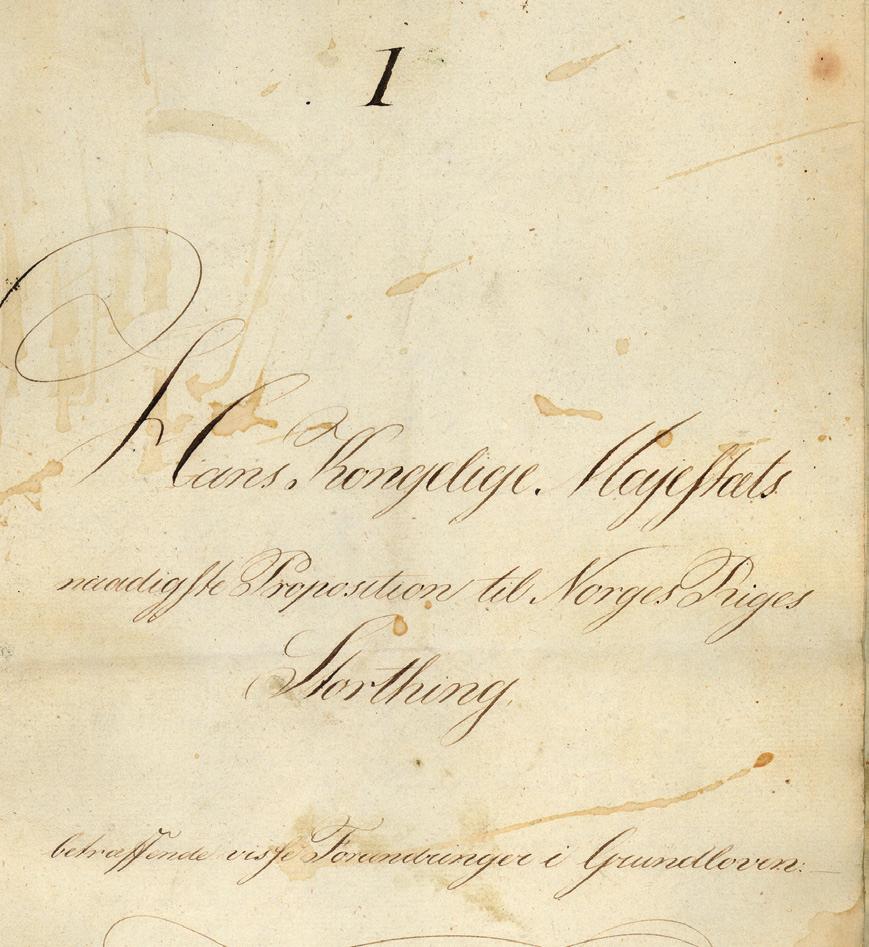 1
Hans Kongelige Majestæts
naadigste Proposition til Norges Riges
Storthing,
betræffende visse Forandringer i Grundloven: